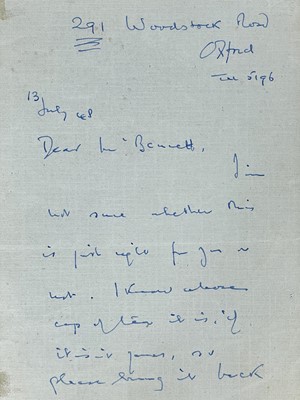 291 Woodstock Road
Oxford
Tel 5196
13
July 48
Dear Mr Bennett,
I'm
not sure whether this
is just right for you or
not. I know whose
cup of tea it is, if
it isn't yours, so
please bring it back